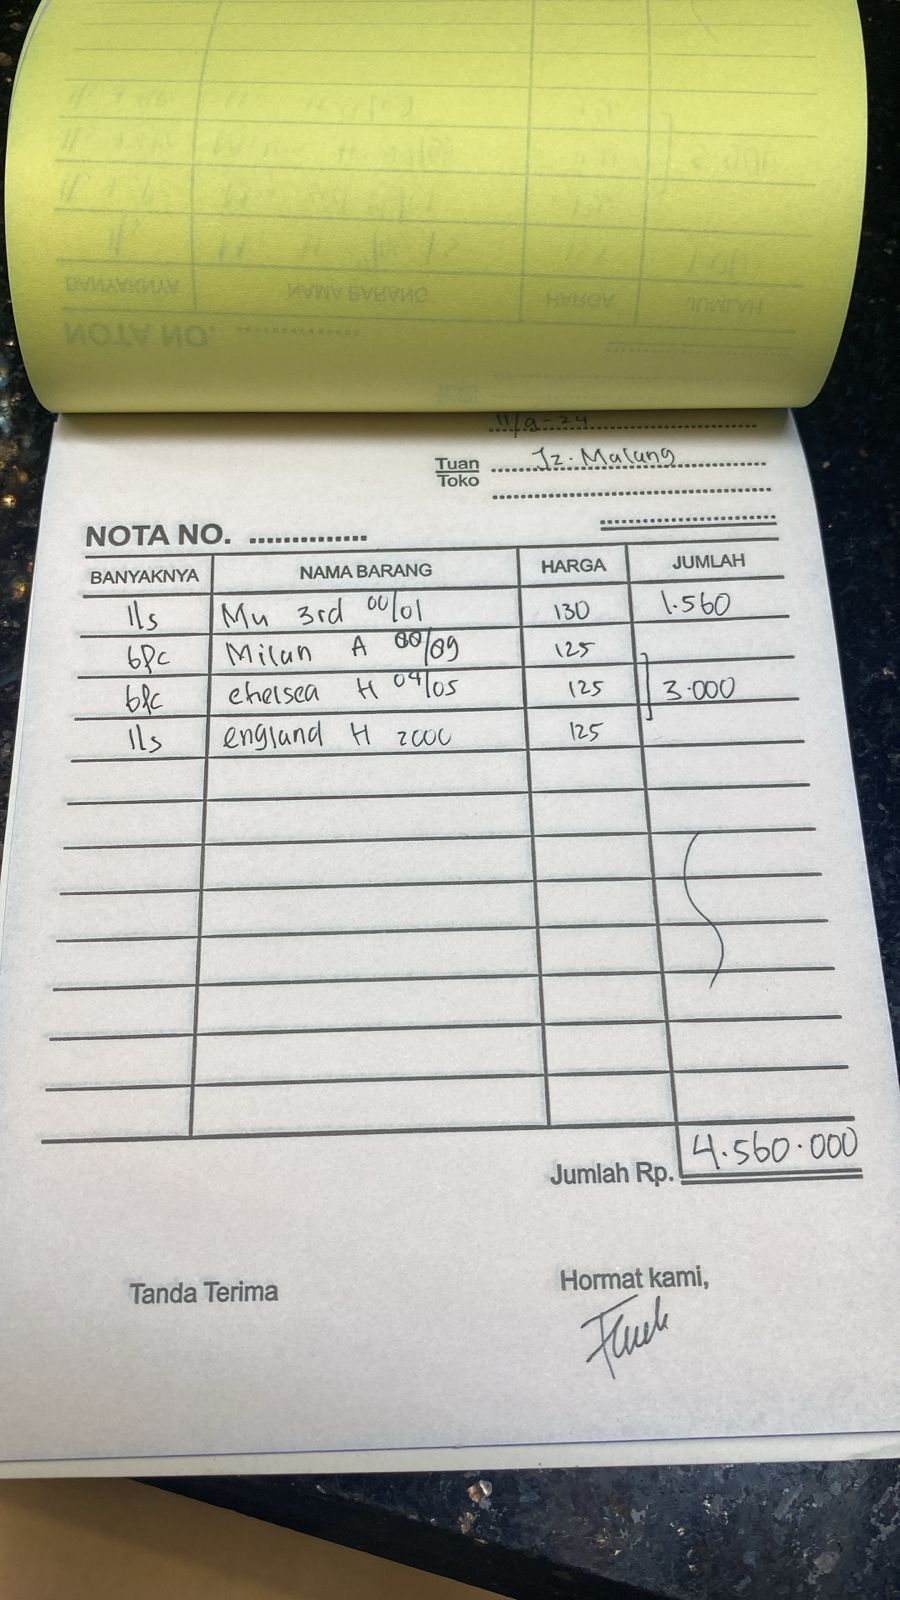 11/9-24
Tuan
Toko
Jz. Malang
NOTA NO. ..............
BANYAKNYA NAMA BARANG HARGA JUMLAH
1ls Mu 3rd 00/01 130 1.560
6Pc Milan A 08/09 125
6Pc chelsea H 04/05 125 3.000
1ls england H 2000 125
Jumlah Rp. 4.560.000
Tanda Terima Hormat kami,